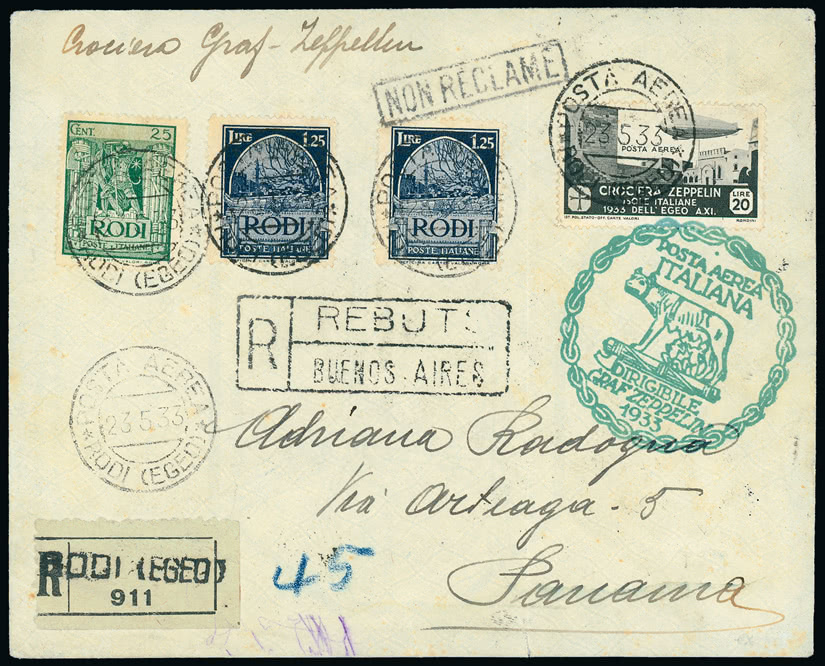 Crociera Graf-Zeppelin
NON RÉCLAMÉ
CENT. 25
RODI
POSTE ITALIANE
LIRE 1.25
RODI
POSTE ITALIANE
LIRE 1.25
RODI
POSTE ITALIANE
POSTA AEREA
23.5.33
POSTA AEREA
CROCIERA ZEPPELIN
ISOLE ITALIANE
1933 DELL'EGEO A.XI.
LIRE 20
IST. POL. STATO-OFF. CARTE VALORI
RODI (EGEO)
POSTA AEREA
ITALIANA
DIRIGIBILE
GRAF ZEPPELIN
1933
R
REBUTS
BUENOS AIRES
POSTA AEREA
23.5.33
RODI (EGEO)
Adriana Radogna
Via Arteaga - 5
Panama
R
RODI (EGEO)
911
45